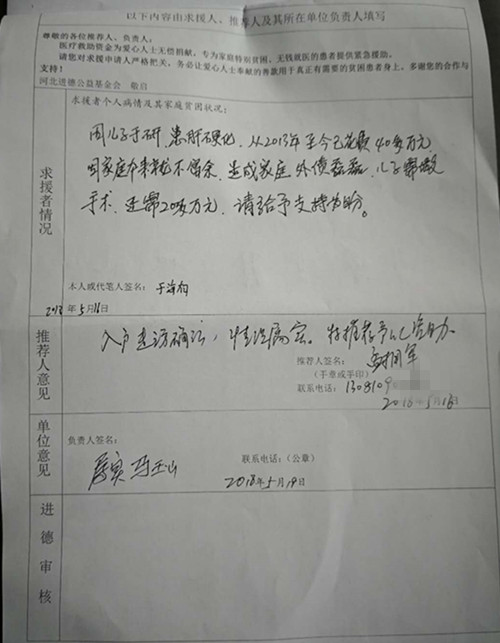 以下内容由求援人、推荐人及其所在单位负责人填写
尊敬的各位推荐人、负责人：
医疗救助资金为爱心人士无偿捐献，专为家庭特别贫困、无钱就医的患者提供紧急救助。
请您对求援申请人严格把关，务必让爱心人士奉献的善款用于真正有需要的贫困患者身上。多谢您的合作与
支持！
河北进德公益基金会 敬启
求援者情况
求援者个人病情及其家庭贫困状况：
因儿子于研，患肝硬化，从2013年至今已花费40多万元，
因家庭本来就不富余，造成家庭外债磊磊，儿子需做
手术，还需20多万元，请给予支持为盼。
本人或代笔人签名：于海
2018年5月16日
推荐人意见
入户走访确认，情况属实。特推荐予以资助
推荐人签名：
（手章或手印）
联系电话：1308109
2018年5月18日
单位意见
负责人签名：
联系电话：（公章）
属实 冯玉山
2018年5月19日
进德审核